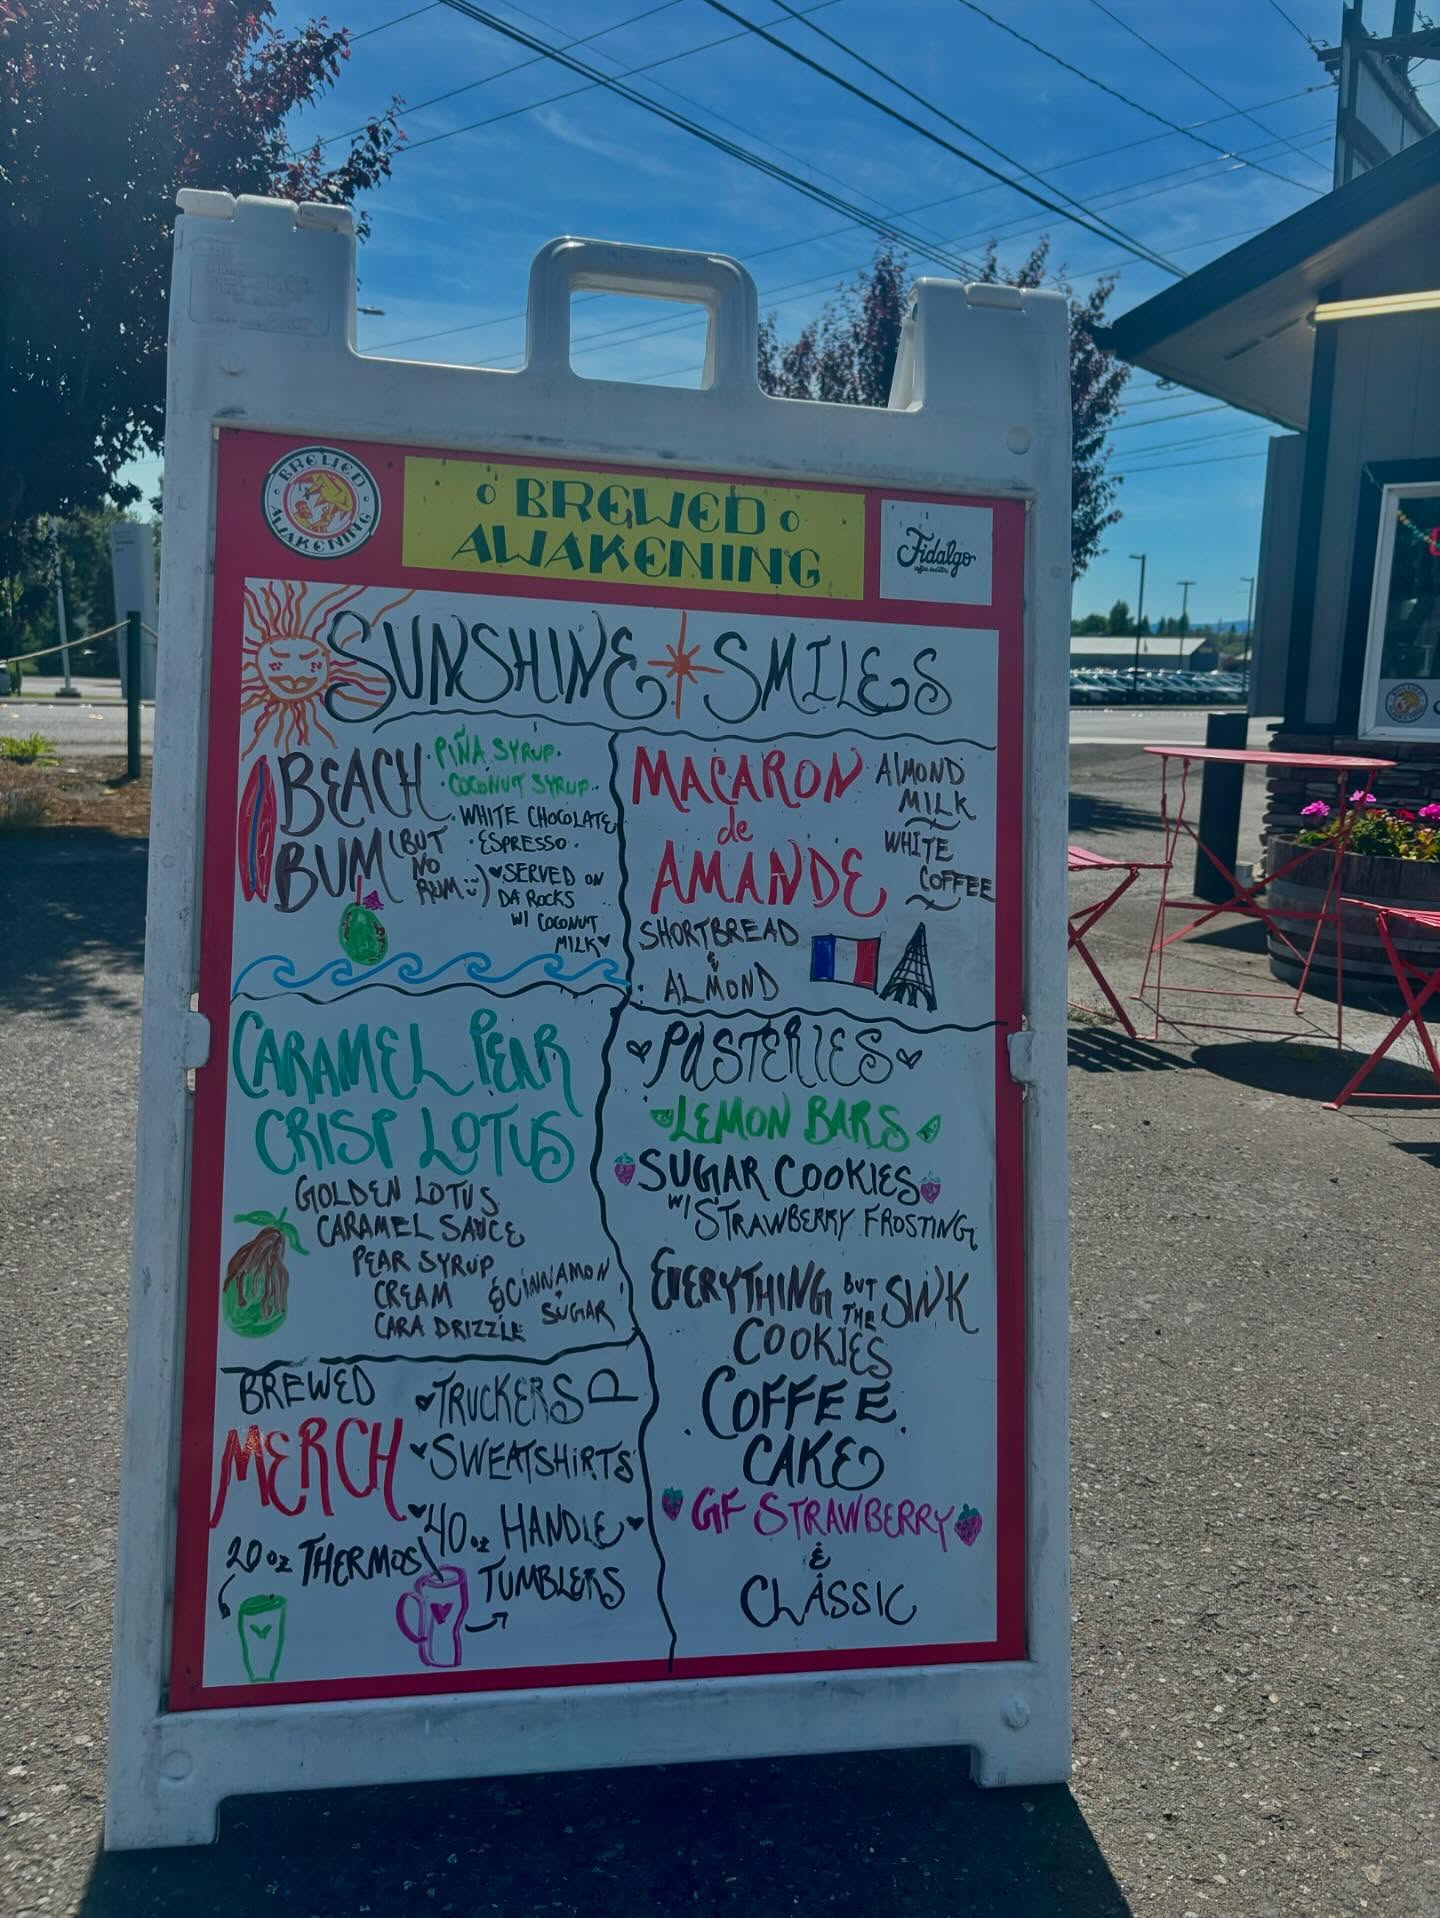 BREWED
AWAKENING
BREWED
AWAKENING
Fidalgo
coffee roasters
SUNSHINE SMILES
BEACH
BUM (BUT
NO
RUM :-)
• PIÑA SYRUP •
• COCONUT SYRUP •
• WHITE CHOCOLATE
• ESPRESSO •
♥ SERVED ON
DA ROCKS
W/ COCONUT
MILK ♥
MACARON
de
AMANDE
• ALMOND
MILK
• WHITE
COFFEE
SHORTBREAD
&
• ALMOND
CARAMEL PEAR
CRISP LOTUS
GOLDEN LOTUS
CARAMEL SAUCE
PEAR SYRUP
CREAM & CINNAMON
SUGAR
CARA DRIZZLE
♥ PASTERIES ♥
LEMON BARS
SUGAR COOKIES
W/ STRAWBERRY FROSTING
EVERYTHING BUT THE SINK
COOKIES
• COFFEE •
CAKE
GF STRAWBERRY
&
CLASSIC
BREWED
MERCH
♥ TRUCKERS
♥ SWEATSHIRTS
♥ 40oz HANDLE ♥
TUMBLERS
20oz THERMOS